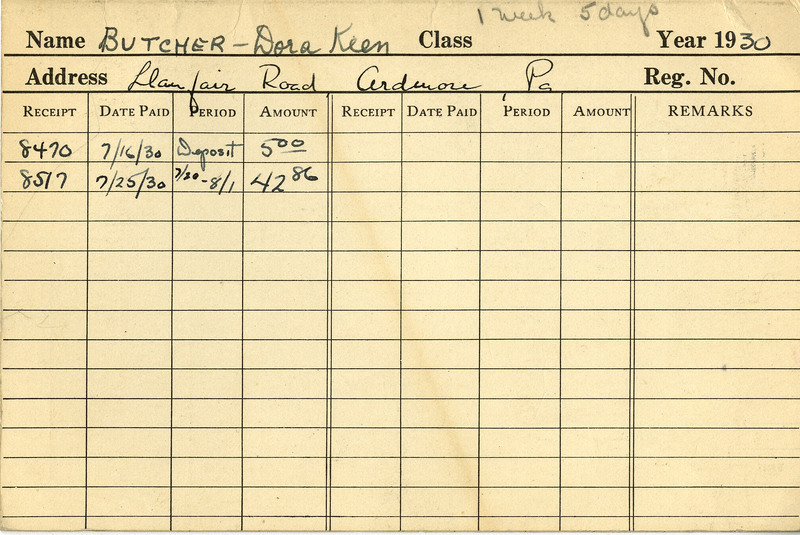 1 week 5 days
Name BUTCHER - Dora Keen Class Year 1930
Address Llanfair Road, Ardmore, Pa Reg. No.
RECEIPT DATE PAID PERIOD AMOUNT RECEIPT DATE PAID PERIOD AMOUNT REMARKS
8470 7/16/30 Deposit 5 00
8517 7/25/30 7/20-8/1 42 86